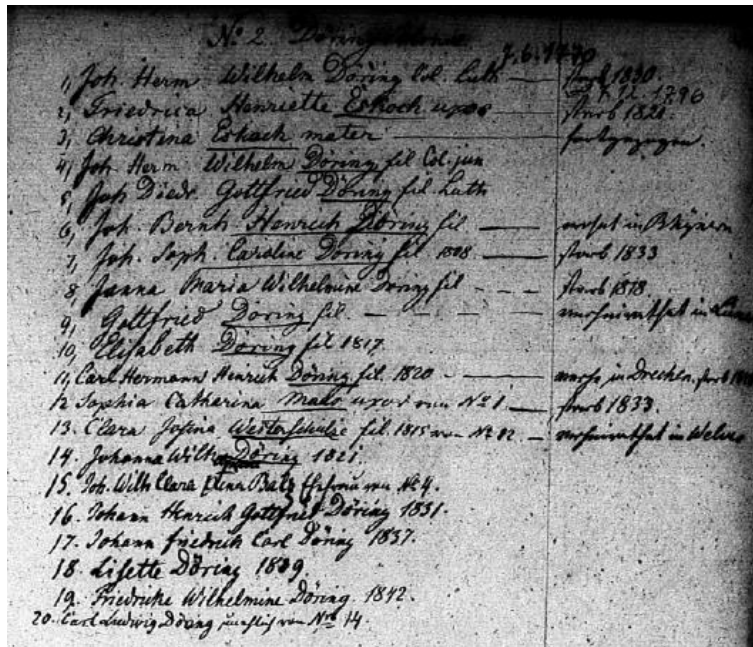 No 2. Döring
7.6.1770
1, Joh. Herm. Wilhelm Döring Col. Luth — starb 1830.
27.12.1796
2, Friedrica Henriette Eskoch uxor — starb 1820.
3, Christina Eskoch mater — fortgezogen.
4, Joh. Herm. Wilhelm Döring fil. Col. jun
5, Joh. Diedr. Gottfried Döring fil. Luth
6, Joh. Bernh. Henrich Döring fil — in Rhynern
7, Joh. Soph. Caroline Döring fil 1808 — starb 1833
8, Janna Maria Wilhelmine Döring fil - - - starb 1818
9, Gottfried Döring fil. — — — — verheirathet in
10, Elisabeth Döring fil 1817
11, Carl Hermann Heinrich Döring fil. 1820 — in Drechen. starb
12 Sophia Catharina uxor von No 1. — starb 1833.
13. Clara Josina Westerschulte fil. 1815 von No 12. — verheirathet in Welver
14. Johanna Wilh. Döring 1821.
15. Joh. Wilh. Clara Ehefrau von No 4.
16. Johann Henrich Gottfried Döring 1831.
17. Johann Friedrich Carl Döring 1837.
18. Lisette Döring 1839
19. Friedrike Wilhelmine Döring 1842.
20. Carl Ludwig Döring unehlich von No 14.